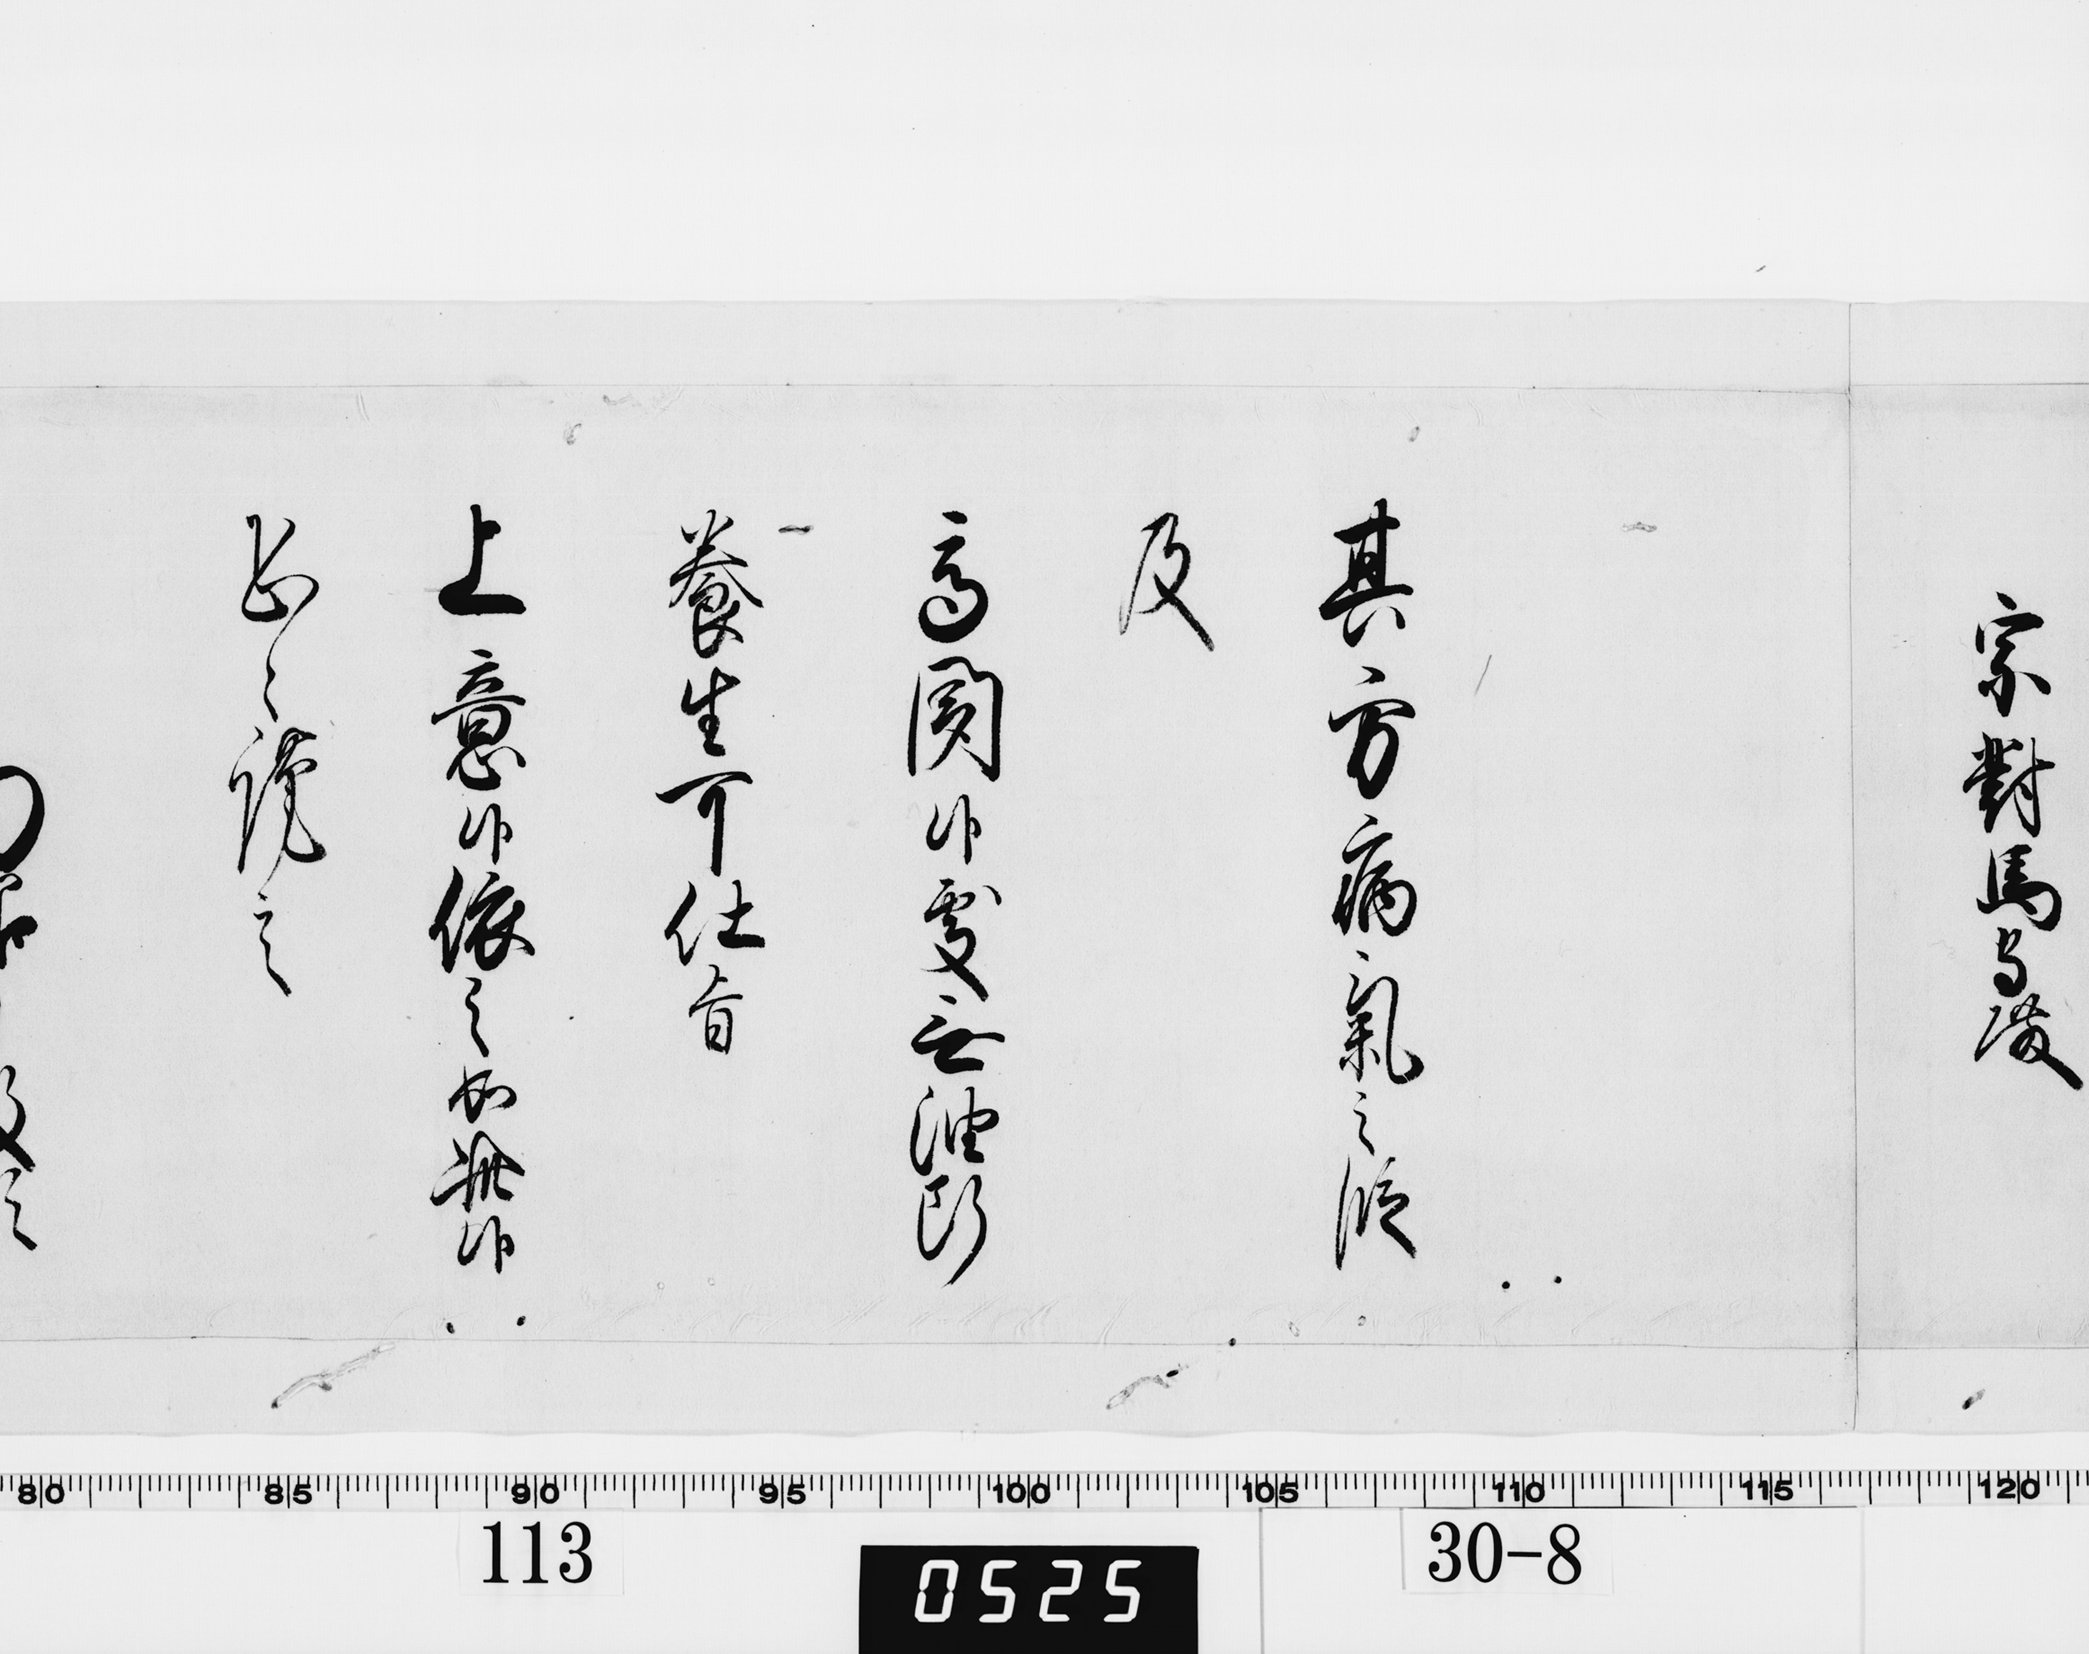 宗對馬守殿
其方病氣之段
及
高聞候處無油断
養生可仕旨
上意候依之如斯候
恐々謹言
80 85 90 95 100 105 110 115 120
113
0525
30-8